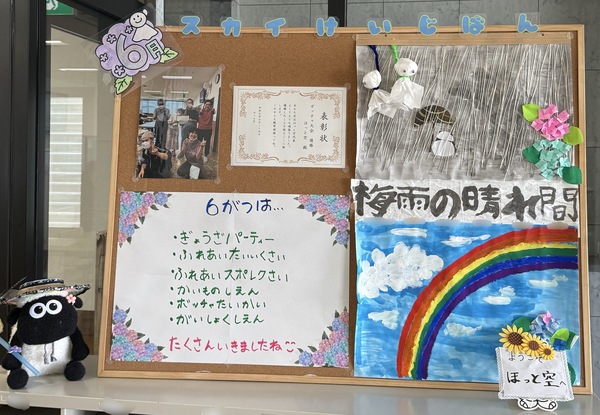 スカイけいじばん
6月
表彰状
6がつは...
・ぎょうざパーティー
・ふれあいたいいくさい
・ふれあいスポレクさい
・かいものしえん
・ボッチャたいかい
・がいしょくしえん
たくさんいきましたね
梅雨の晴れ間
ようこそ
ほっと空へ